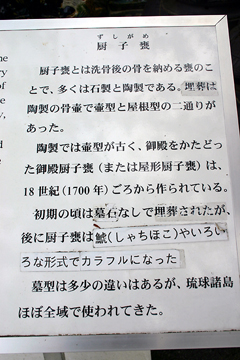 ずしがめ
厨子甕
厨子甕とは洗骨後の骨を納める甕のこ
とで、多くは石製と陶製である。埋葬は
陶製の骨壺で壺型と屋根型の二通りが
あった。
陶製では壺型が古く、御殿をかたどっ
た御殿厨子甕（または屋形厨子甕）は、
18世紀(1700年)ごろから作られている。
初期の頃は墓石なしで埋葬されたが、
後に厨子甕は鯱(しゃちほこ)やいろい
ろな形式でカラフルになった
墓型は多少の違いはあるが、琉球諸島
ほぼ全域で使われてきた。